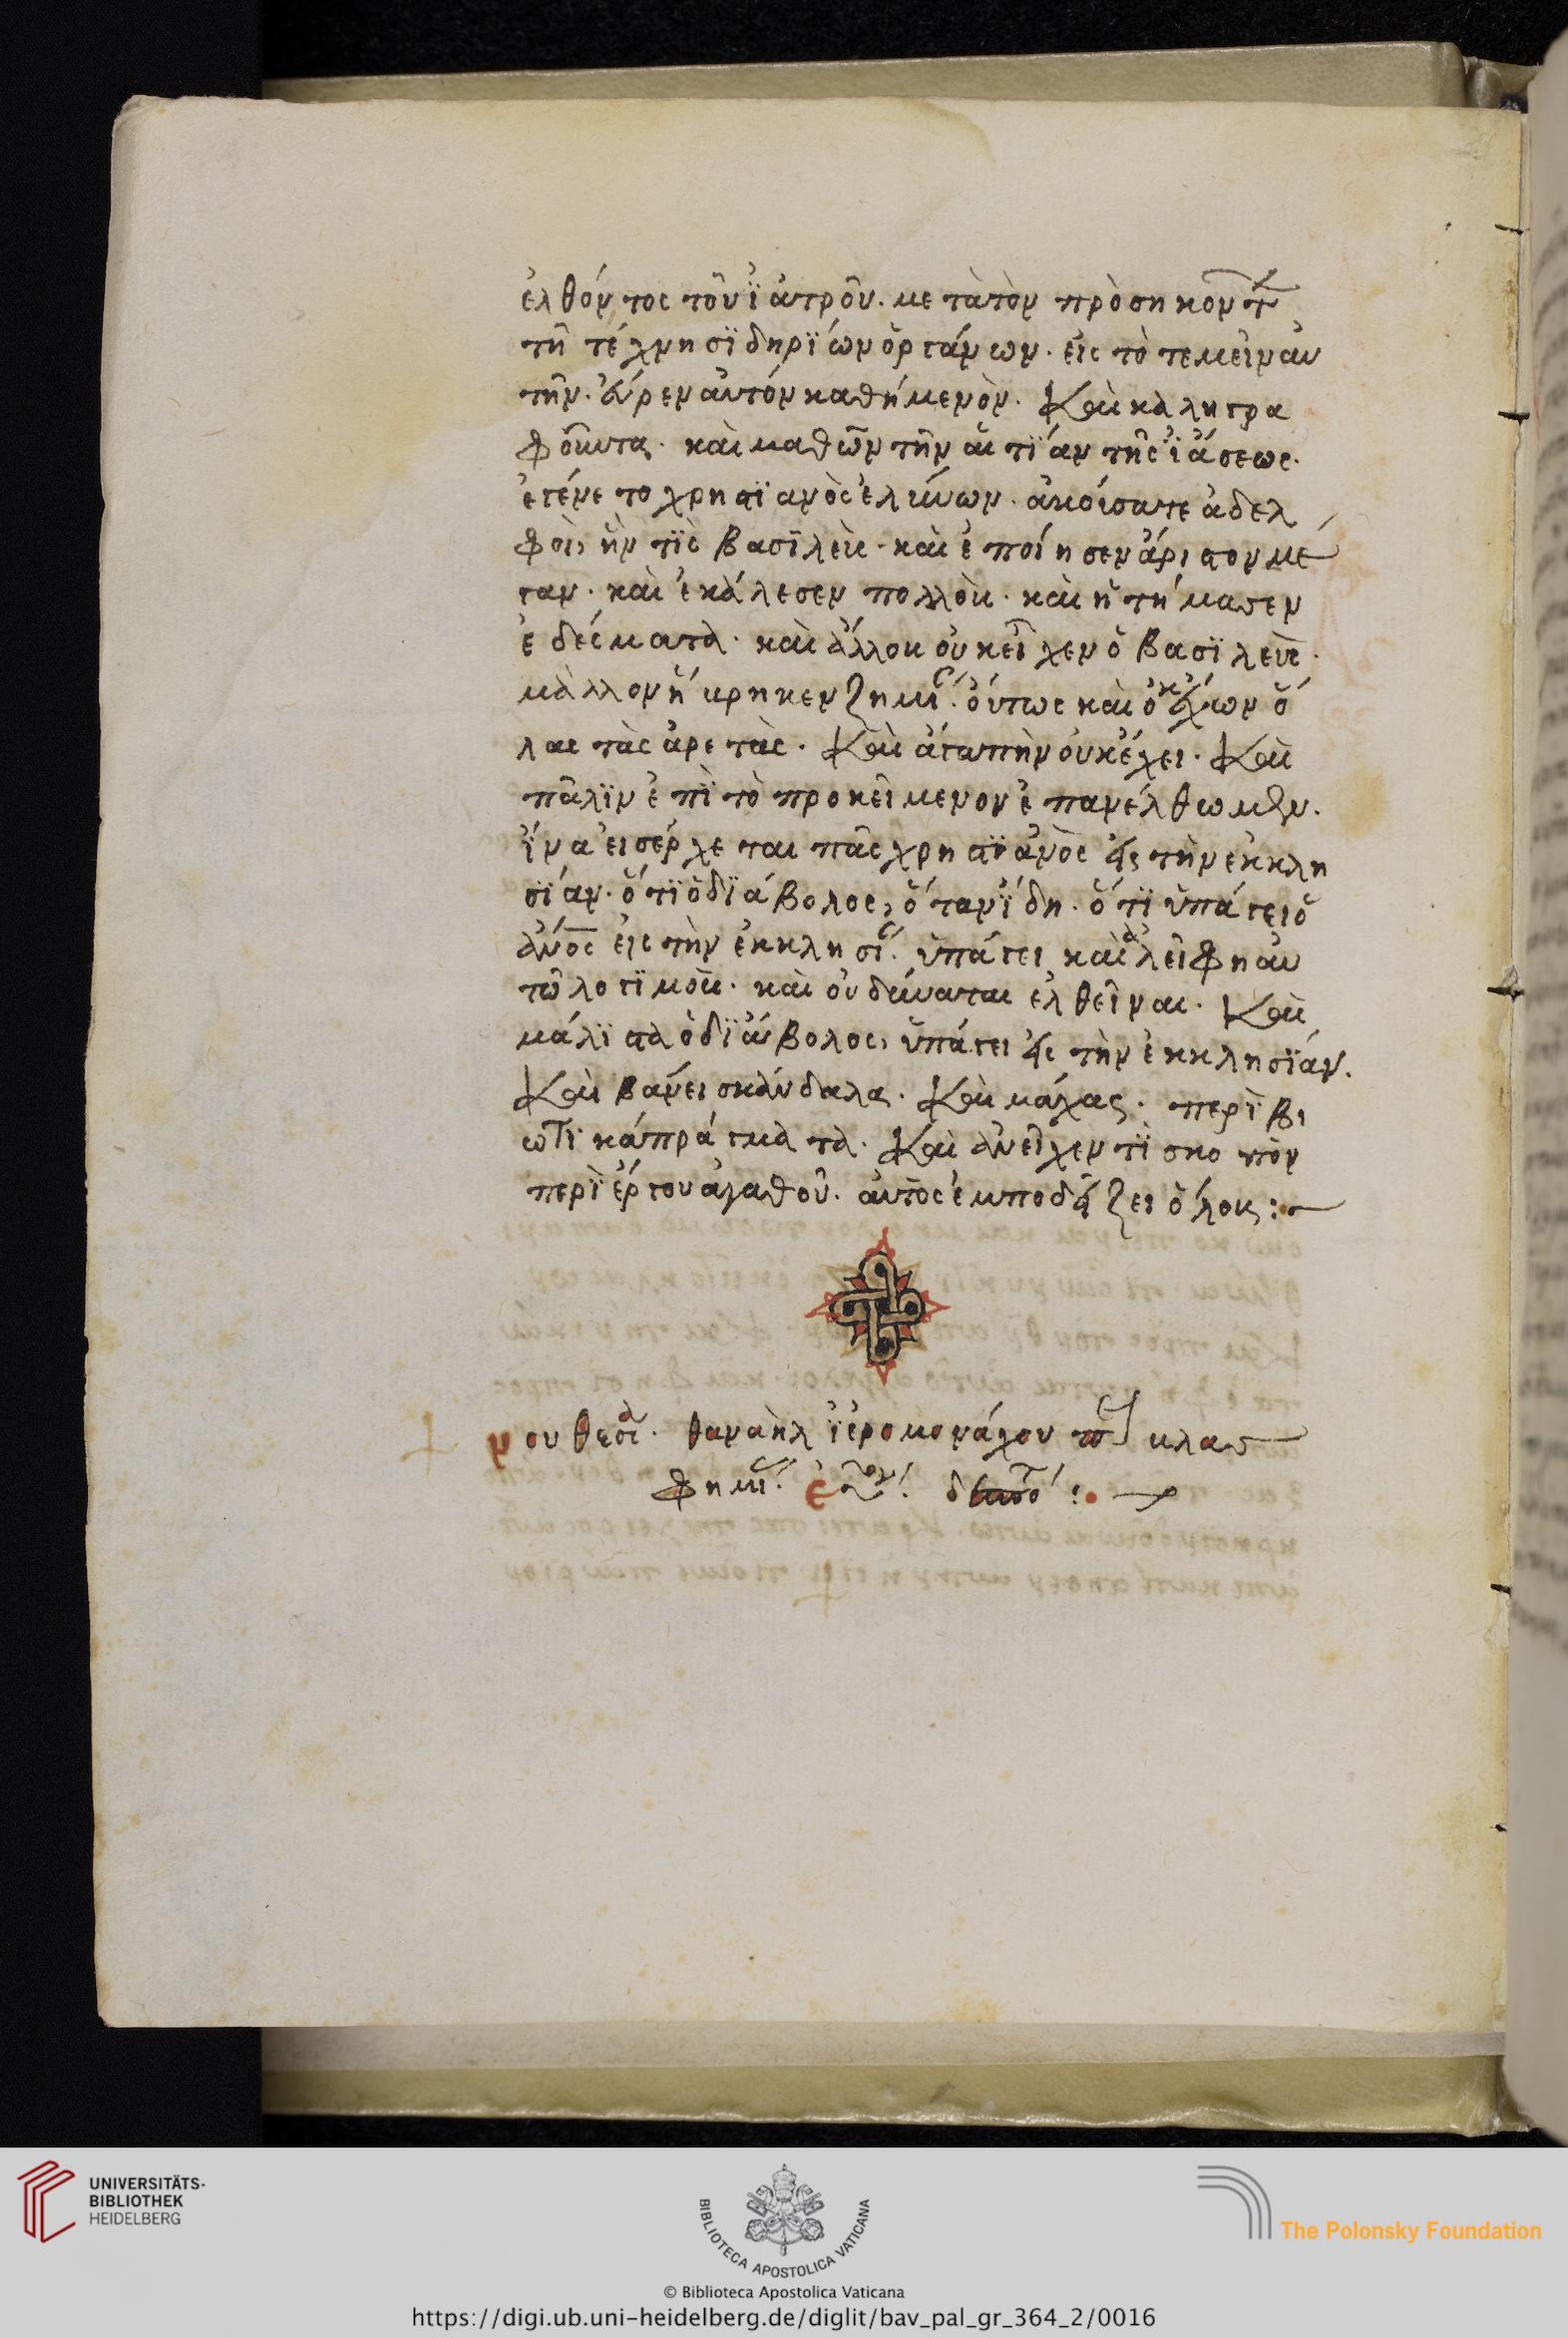 ἐλθόντος τοῦ ϊατροῦ. μετὰ τὸν πρὸσηκοντ
τῆ τέχνη σϊδηρϊων ὀργάνων. εἰς τὸ τεμεῖν αυ
τὴν. εὗρεν αὐτόν καθήμενὸν. Καὶ καλητρα
φοῦντα. καὶ μαθῶν τὴν αἰτϊαν τῆς ϊάσεως.
ἐγένετο χρηστϊανὸς ἑλήνων. ἀκούσατε ἀδελ
φοὶ, ἦν τϊς βασϊλεὺς. καὶ ἐποίησεν ἄριστον μέ
γαν. καὶ ἐκάλεσεν πολλοὺς. καὶ ἡτήμασεν
ἐδέσματα. καὶ ἄλλους οὐκ εἶχεν ὁ βασϊλεὺς.
μάλλον ηὕρηκεν ζημί. οὕτως καὶ ὁ ἔχων ὅ
λας τὰς ἀρετὰς. Καὶ ἀγαπὴν οὐκ ἔχει. Καὶ
πάλϊν ἐπϊ τὸ προκεῖμενον ἐπανέλθωμεν.
ἵνα εἰσέρχεται πᾶς χρηστϊανὸς εἰς τὴν ἐκκλη
σϊαν. ὅτϊ ὁ δϊάβολος, ὅταν ϊδη. ὅτϊ ὑπάγει ὁ
ἄνος εἰς τὴν ἐκκλησί. ὑπάγει καὶ ἀλείφη αυ
τῶ λογϊσμοὺς. καὶ οὐ δύναται ἐλθεῖναι. Καὶ
μάλϊστα ὁ δϊάβολος, ὑπάγει εἰς τὴν ἐκκλησϊαν.
Καὶ βάνει σκάνδαλα. Καὶ μάχας. περϊ βι
ωτϊκά πράγματα. Καὶ ἀνεῖχεν τϊ σκοπὸν
περϊ ἔργου ἀγαθοῦ. αὐτὸς ἐμποδίζει ὅλους :~
νουθεσί. θαναὴλ ϊερομονάχου
φημί.
UNIVERSITÄTS-
BIBLIOTHEK
HEIDELBERG
BIBLIOTECA APOSTOLICA VATICANA
The Polonsky Foundation
© Biblioteca Apostolica Vaticana
https://digi.ub.uni-heidelberg.de/diglit/bav_pal_gr_364_2/0016